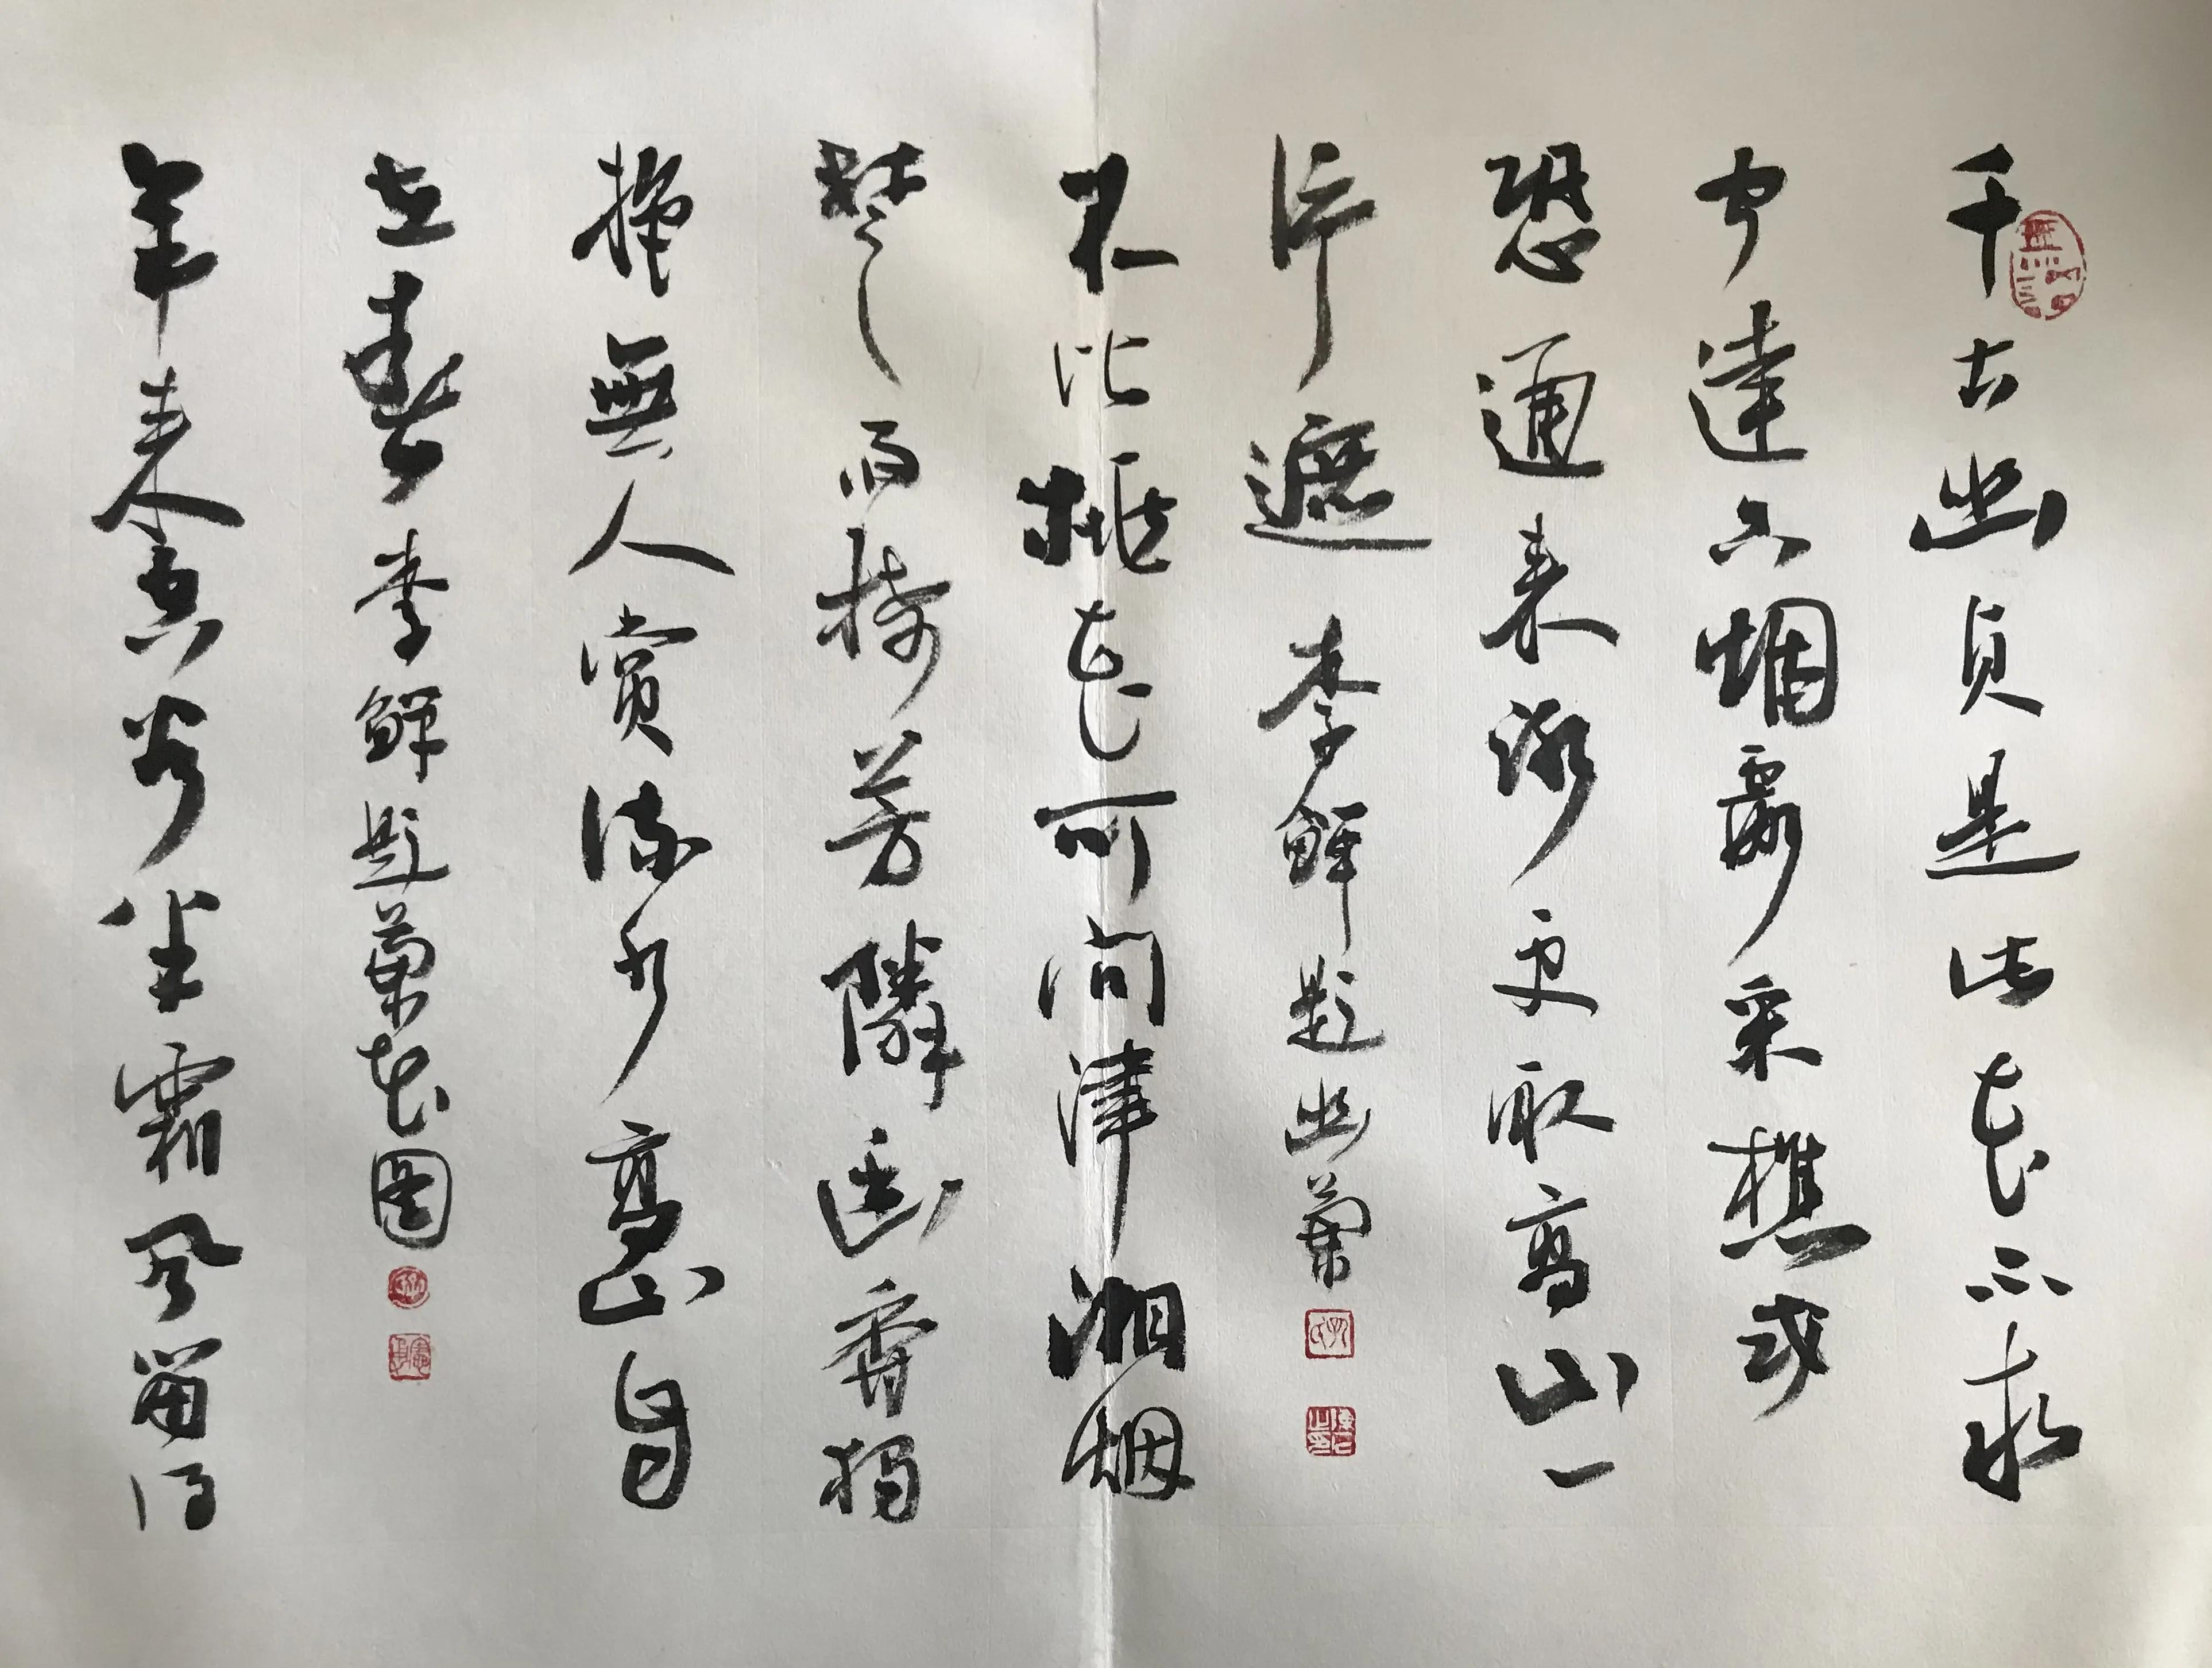 千古幽貞是此花不求
聞達只烟霞采樵或
恐通来路更取高山一
片遮 李鱓題幽蘭
不比桃花可問津湘烟
楚雨芳隣幽香獨
抱無人賞流水高山自
在春 李鱓題蘭花圖
年来空谷半霜風留得